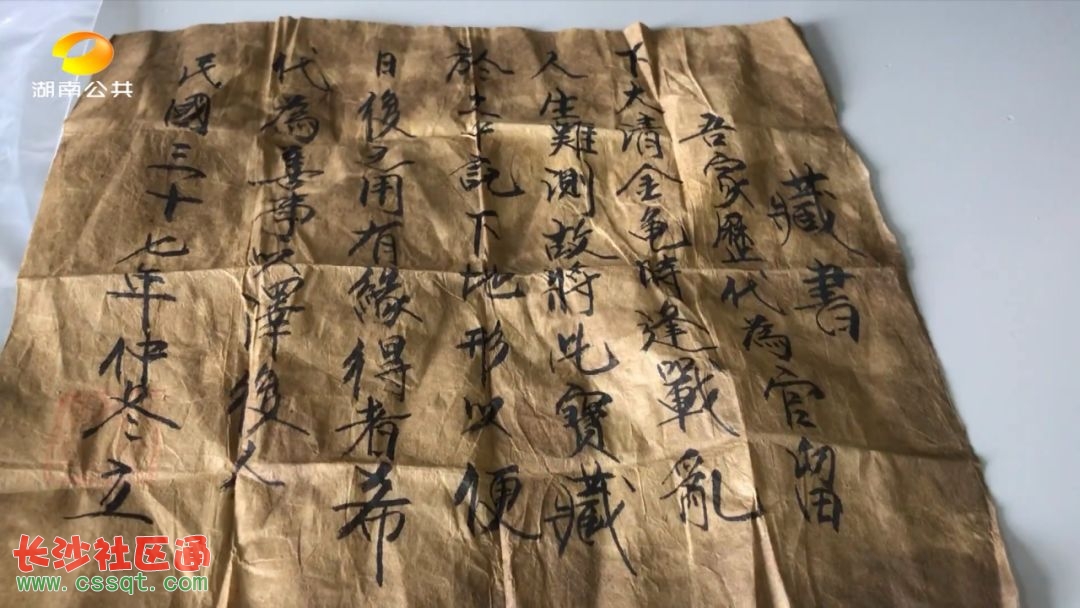 藏書
吾家歷代為官留
下大清金龜時逢戰亂
人生難測故將此寶藏
於之下記下地形以便
日後之用有緣得者希
代為善事以澤後人
民國三十七年仲冬立
湖南公共
长沙社区通
www.cssqt.com